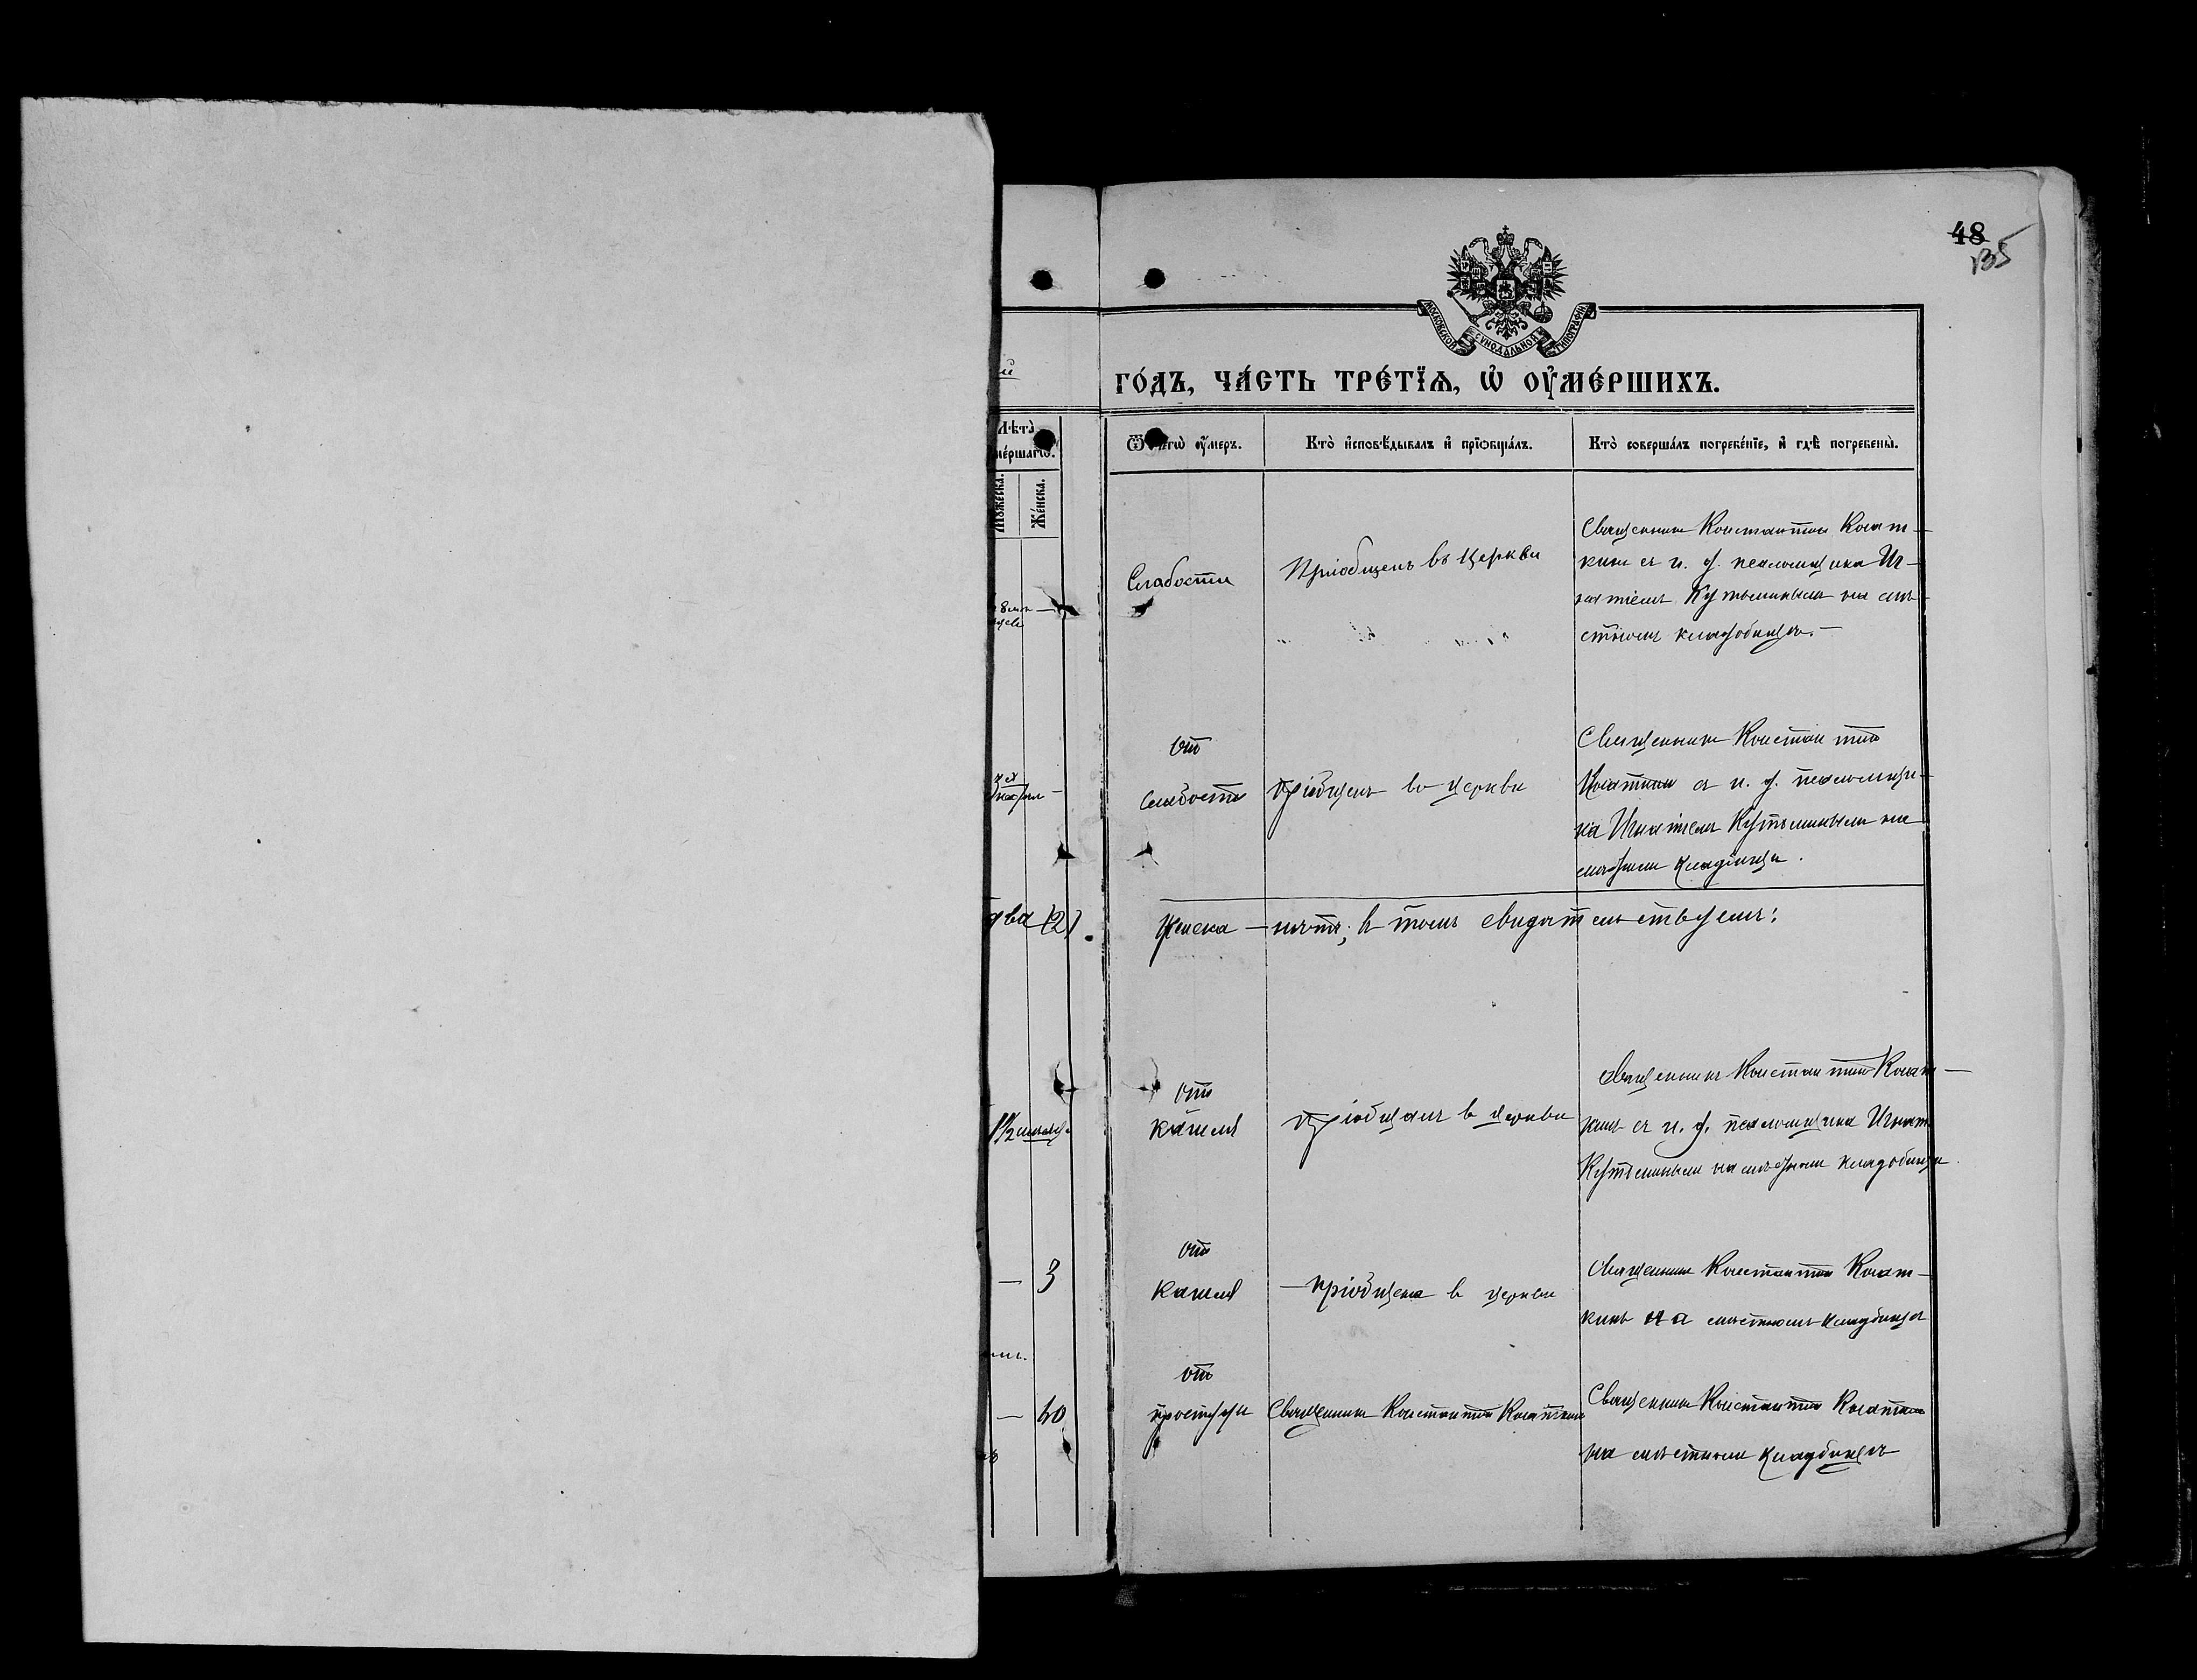 48
135
МОСКОВСКОЙ СѴНОДАЛЬНОЙ ТИПОГРАФІИ
го́дъ, ча́сть тре́тїѧ, ѡ҆ оу҆ме́ршихъ.
Лѣта̀
ме́ршагѡ.
Мꙋ́жеска.
Же́нска.
Ѿ чегѡ̀ оу҆́меръ.
Кто̀ и҆сповѣ́дывалъ и҆ прїѡбща́лъ.
Кто̀ соверша́лъ погребе́нїе, и҆ гдѣ̀ погребены̀.
Слабости
Пріобщенъ въ Церкви
Священникъ Константин Колат-
кин съ и. д. псаломщика Иг-
натіемъ Кутыминымъ на мѣ-
стномъ кладбищѣ.-
отъ
слабости
пріобщенъ въ церкви
Священникъ Константин
Колаткин съ и. д. псаломщи-
ка Игнатіем Кутыминымъ на
кладбищѣ.
два (2).
Женска - нѣтъ; в томъ свидѣтельствуемъ:
1½ мѣсяц.
отъ
кашля
пріобщалъ в церкви
Священникъ Константин Колат-
кинъ съ и. д. псаломщика Игнат.
Кутыминымъ на кладбищѣ
- 3
отъ
кашля
- пріобщена в церкви
Священникъ Константин Колат-
кинъ на мѣстномъ кладбищѣ
- 40
отъ
простуды
Священникъ Константин Колаткин
Священникъ Константин Колаткин
на мѣстномъ кладбищѣ